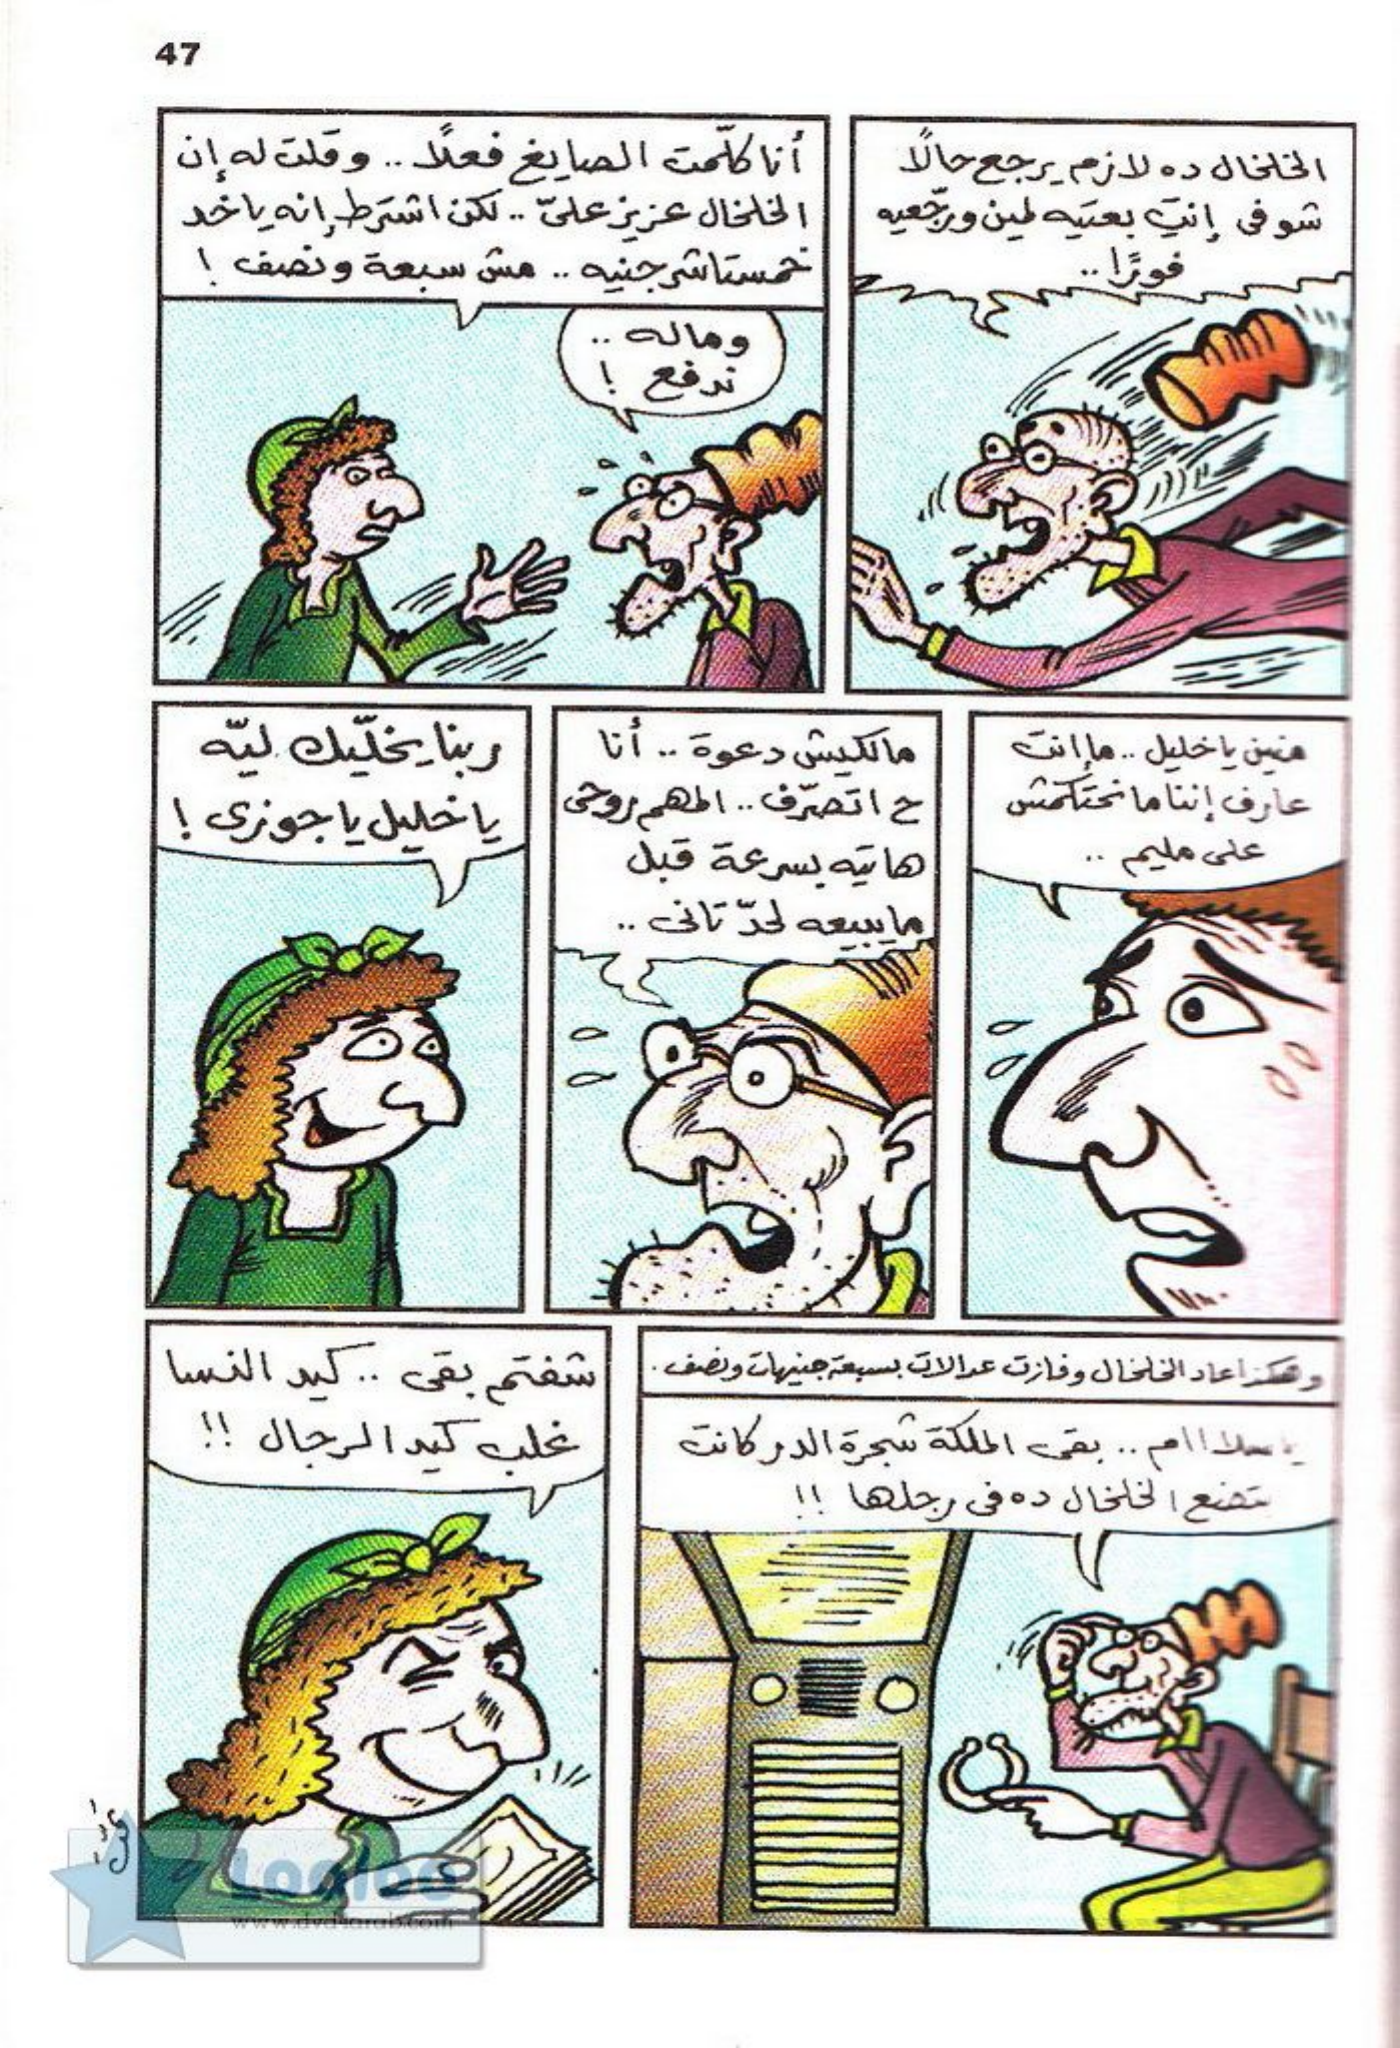 47
الخلخال ده لازم يرجع حالًا
شوفى إنتِ بعتيه لمين ورجّعيه
فورًا..
أنا كلّمت الصايغ فعلًا.. وقلت له إن
الخلخال عزيز علىّ.. لكن اشترط إنه ياخد
خمستاشر جنيه.. مش سبعة ونصف !
وماله..
ندفع !
منين يا خليل.. ما إنت
عارف إننا ما نحتكمش
على مليم..
مالكيش دعوة.. أنا
ح اتصرّف.. المهم روحى
هاتيه بسرعة قبل
ما يبيعه لحدّ تانى..
ربنا يخلّيك ليّه
يا خليل يا جوزى !
وهكذا عاد الخلخال وفازت عدالات بسبعة جنيهات ونصف.
يا سلااام.. بقى الملكة شجرة الدر كانت
بتضع الخلخال ده فى رجلها !!
شفتم بقى.. كيد النسا
غلب كيد الرجال !!
www.dvd4arab.com